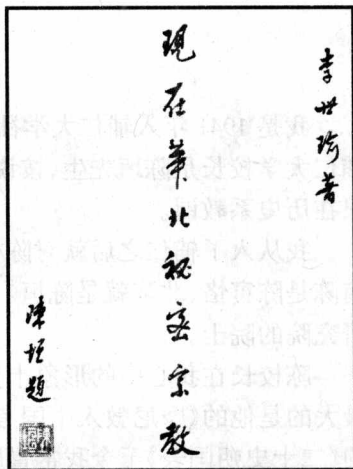 李世瑜著
現在華北秘密宗教
陳垣題